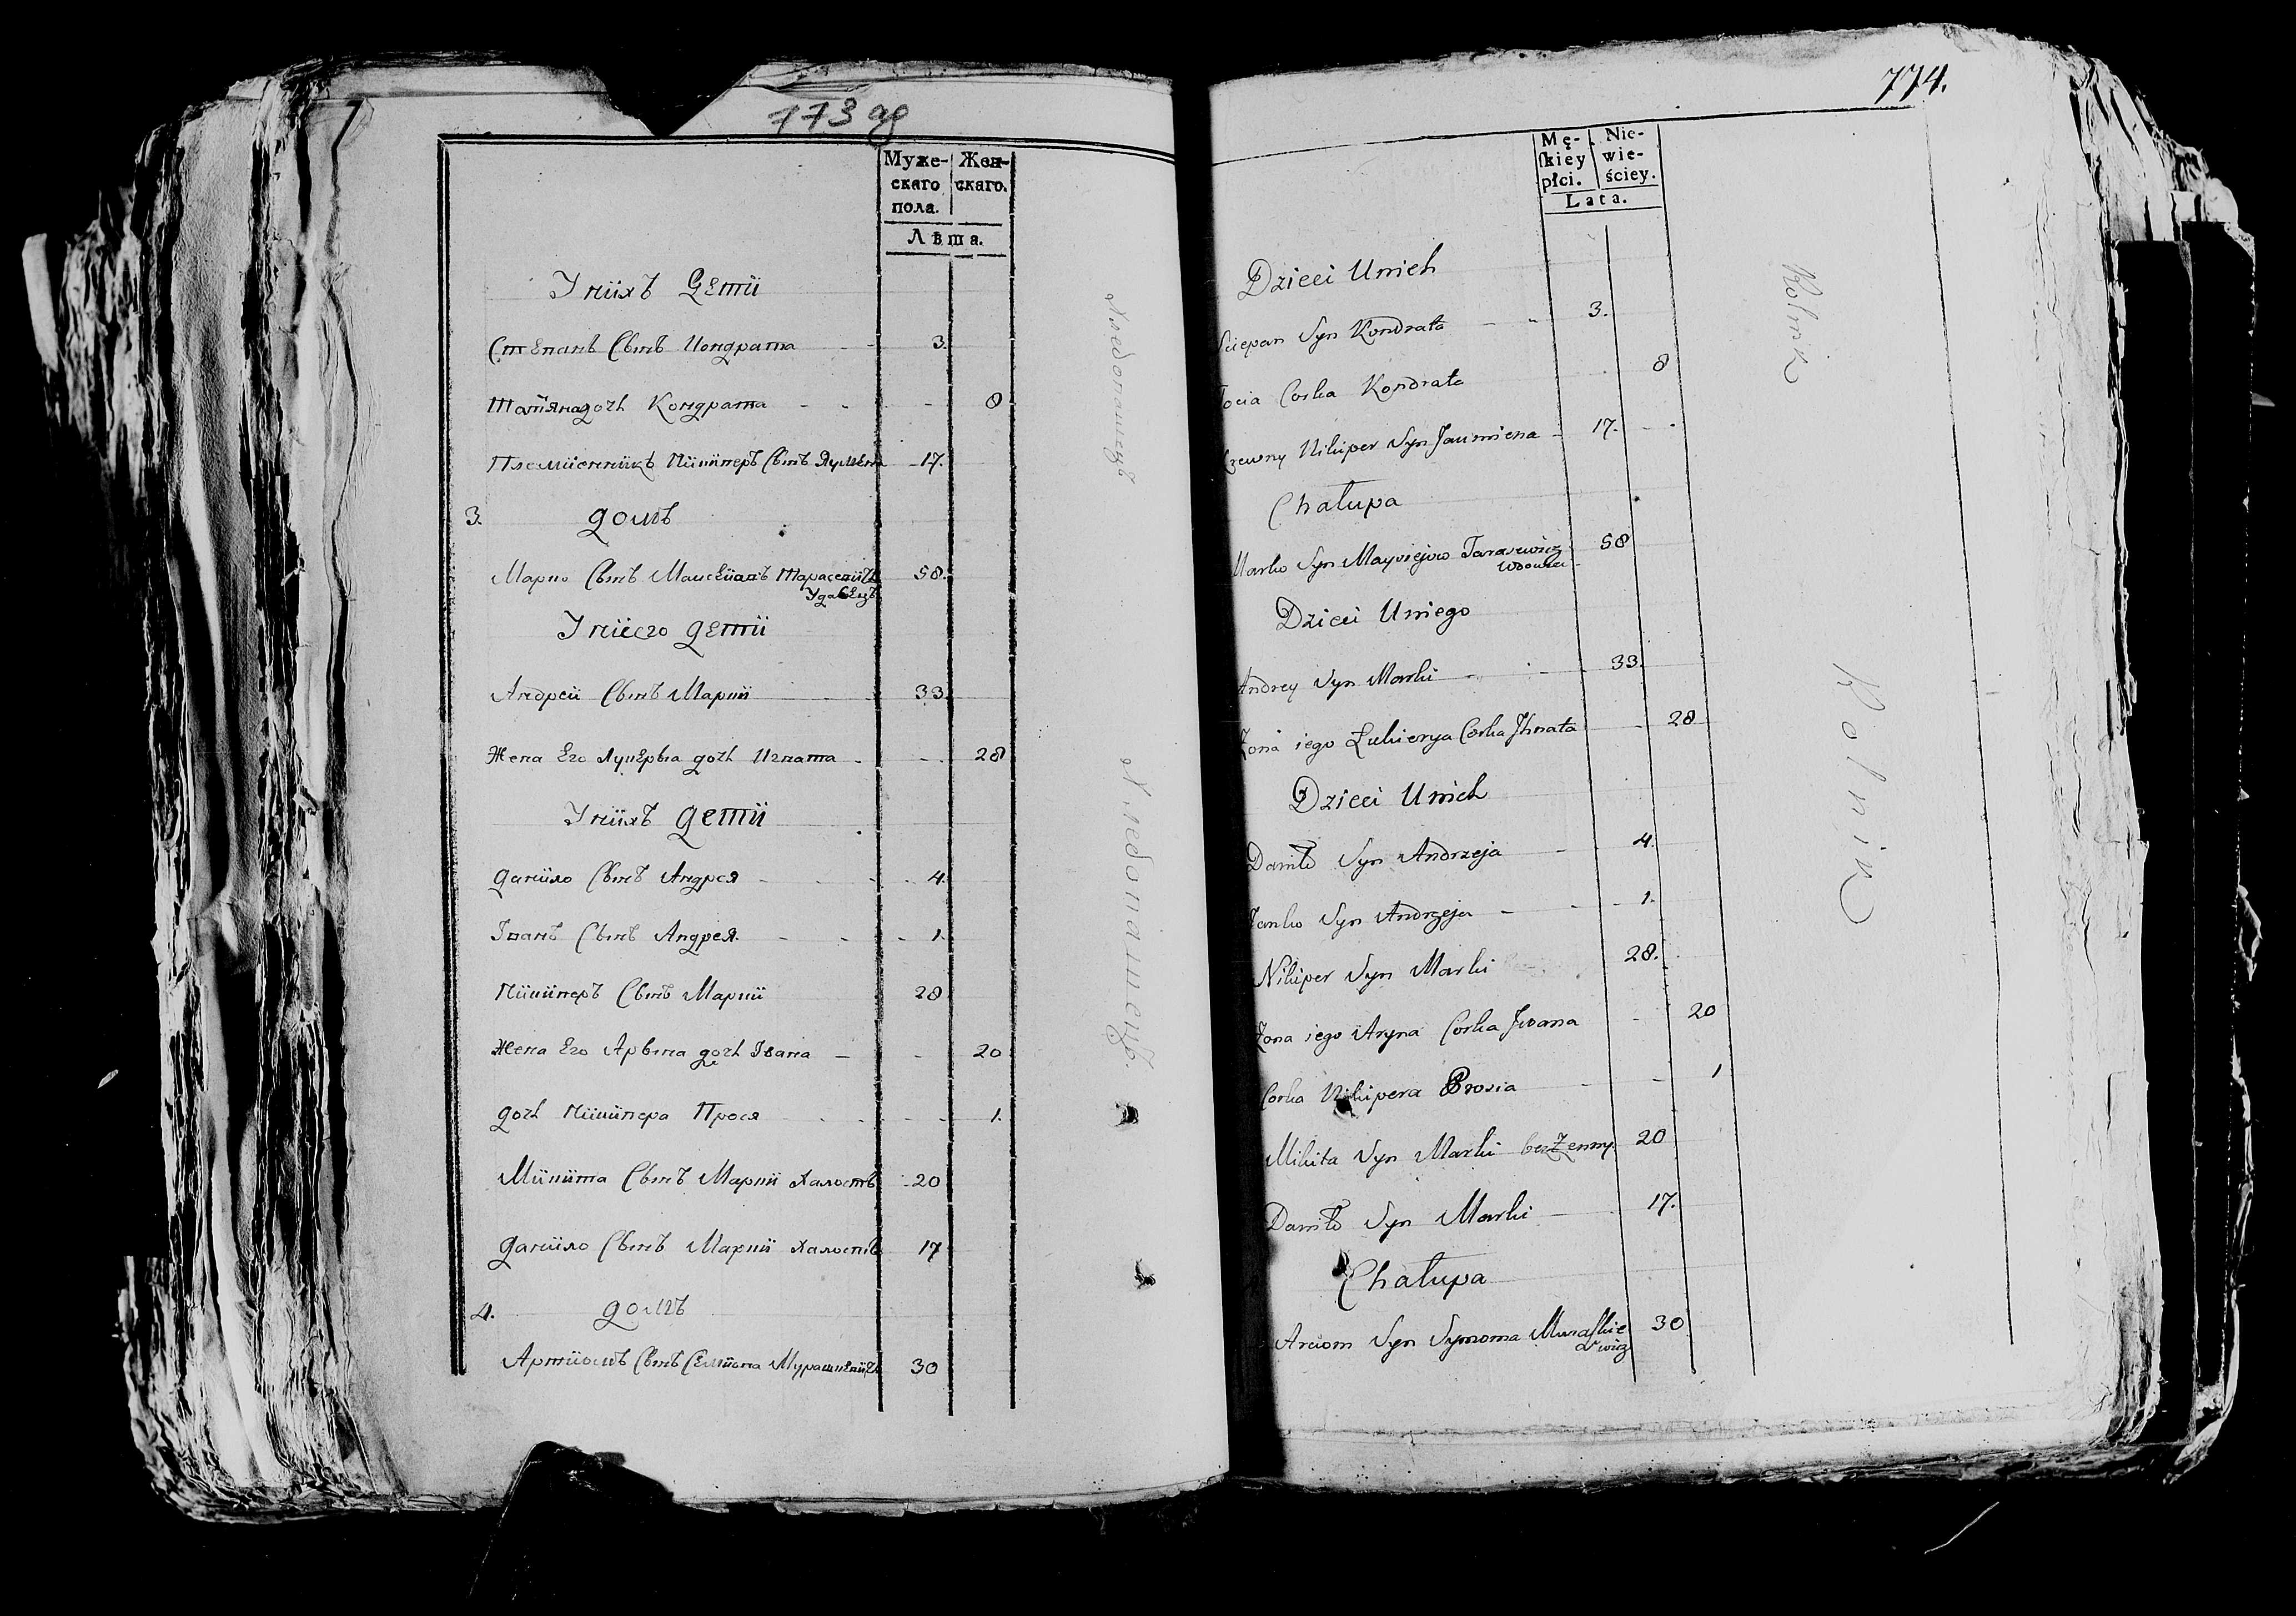 773 ag
Муже-
скаго
пола.
Жен-
скаго.
Лѣта.
Унiихъ Детiи
Степанъ Сынъ Кондрата 3.
Татянa дочь Кондрата 8
Племiенникъ Никиперъ Сынъ Яумена 17.
3. Домъ
Марко Сынъ Тарасевiчъ 58.
Удавецъ
Унiего Детiи
Андрей Сынъ Марки 33.
Жена Его Лукерья дочь Игната 28
Унiихъ Детiи
Данiило Сынъ Андрея 4.
Iванъ Сынъ Андрея 1.
Никиперъ Сынъ Марки 28
Жена Его Арына дочь Iвана 20
Дочь Никипера Прося 1.
Микита Сынъ Марки Халостъ 20
Данiило Сынъ Марки Халостъ 17
4. Домъ
Артiомъ Сынъ Семiона Мурашкевiчъ 30
Хлебопашецъ
Хлебопашецъ.
774.
Mę-
ſkiey
płci.
Nie-
wie-
ściey.
Lata.
Dzieci Unich
Sciepan Syn Kondrata 3.
Corka Kondrata 8
Nikiper Syn Jaumiena 17.
Chałupa
Marko Syn Tarasewicz 58
Wdowiec
Dzieci Uniego
Andrey Syn Marki 33.
Żona iego Łukierya Corka Jhnata 28
Dzieci Unich
Daniło Syn Andrzeja 4.
Janko Syn Andrzeja 1.
Nikiper Syn Marki 28.
Żona iego Aryna Corka Jwana 20
Corka Nikipera Prosia 1
Mikita Syn Marki bezżenny 20
Daniło Syn Marki 17.
Chałupa
Arciom Syn Symona Muraſhke 30
wicz
Rolnik
Rolnik